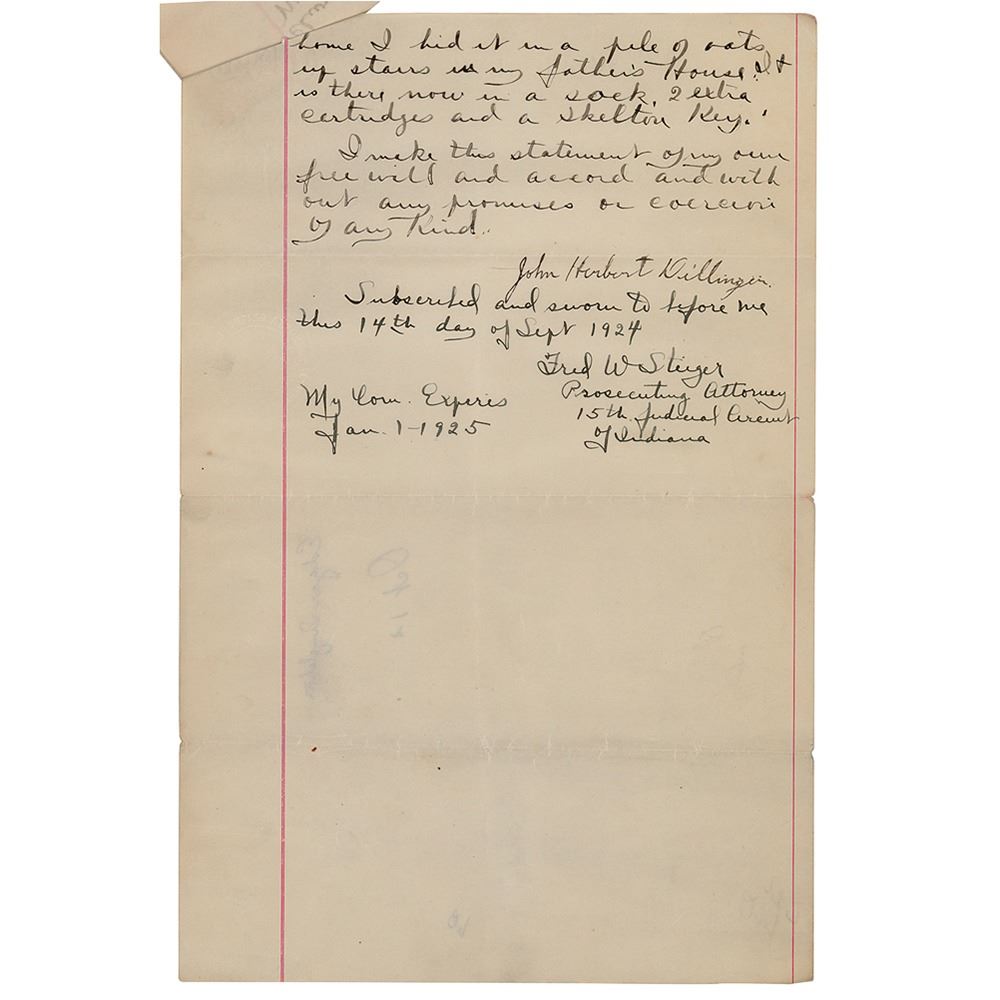 home I hid it in a pile of oats
up stairs in my father's House. It
is there now in a sock, 2 extra
cartridges and a skelton Key.
I make this statement of my own
free will and accord and with
out any promises or coercion
of any kind.
John Herbert Dillinger.
Subscribed and sworn to before me
this 14th day of Sept 1924
Fred W Steiger
Prosecuting Attorney
15th Judicial Circuit
of Indiana
My Com. Experis
Jan. 1-1925